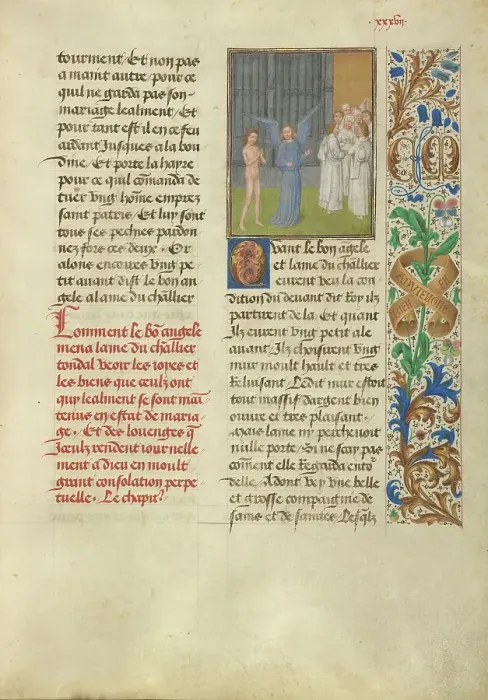 xxxvii
tourment / Et non pas
a maint autre / pour ce
quil ne garda pas son
mariage lealment / Et
pour tant est il en ce feu
aidant Jusques a la bon
dine / Et porte la hayre
pour ce quil cōmanda de
tuer vng hōme emprez
saint patris / Et luy sont
tous ses pechies pardon
nez fors ces deux . Or
alons encores vng pe
tit auant dist le bon an
gele a lame du chlr̄
Comment le bō angele
mena lame du chlr̄
tondal veoir les ioyes et
les biens que ceulz ont
qui lealment se sont mai
tenus en estat de maria
ge . Et des louenges q̄
Iceulz rendent iournelle
ment a dieu en moult
grant consolation perpe
tuelle . Le chapitr̄
Quant le bon āgele
et lame du chlr̄
eurent veu la con
dition du deuant dit Roy ilz
partirent de la . Et quant
Ilz eurent vng petit ale
auant / Ilz choisirent vng
mur moult hault et tres
Reluisant / Ledit mur estoit
tout massif dargent bien
ouure et tres plaisant .
Mais lame ny percheuoit
nulle porte / Si ne scay pas
cōment elle Regarda ento
delle / Adont vey vne belle
et grosse compaignie de
sains et de saintes / Lesq̄lz
CM